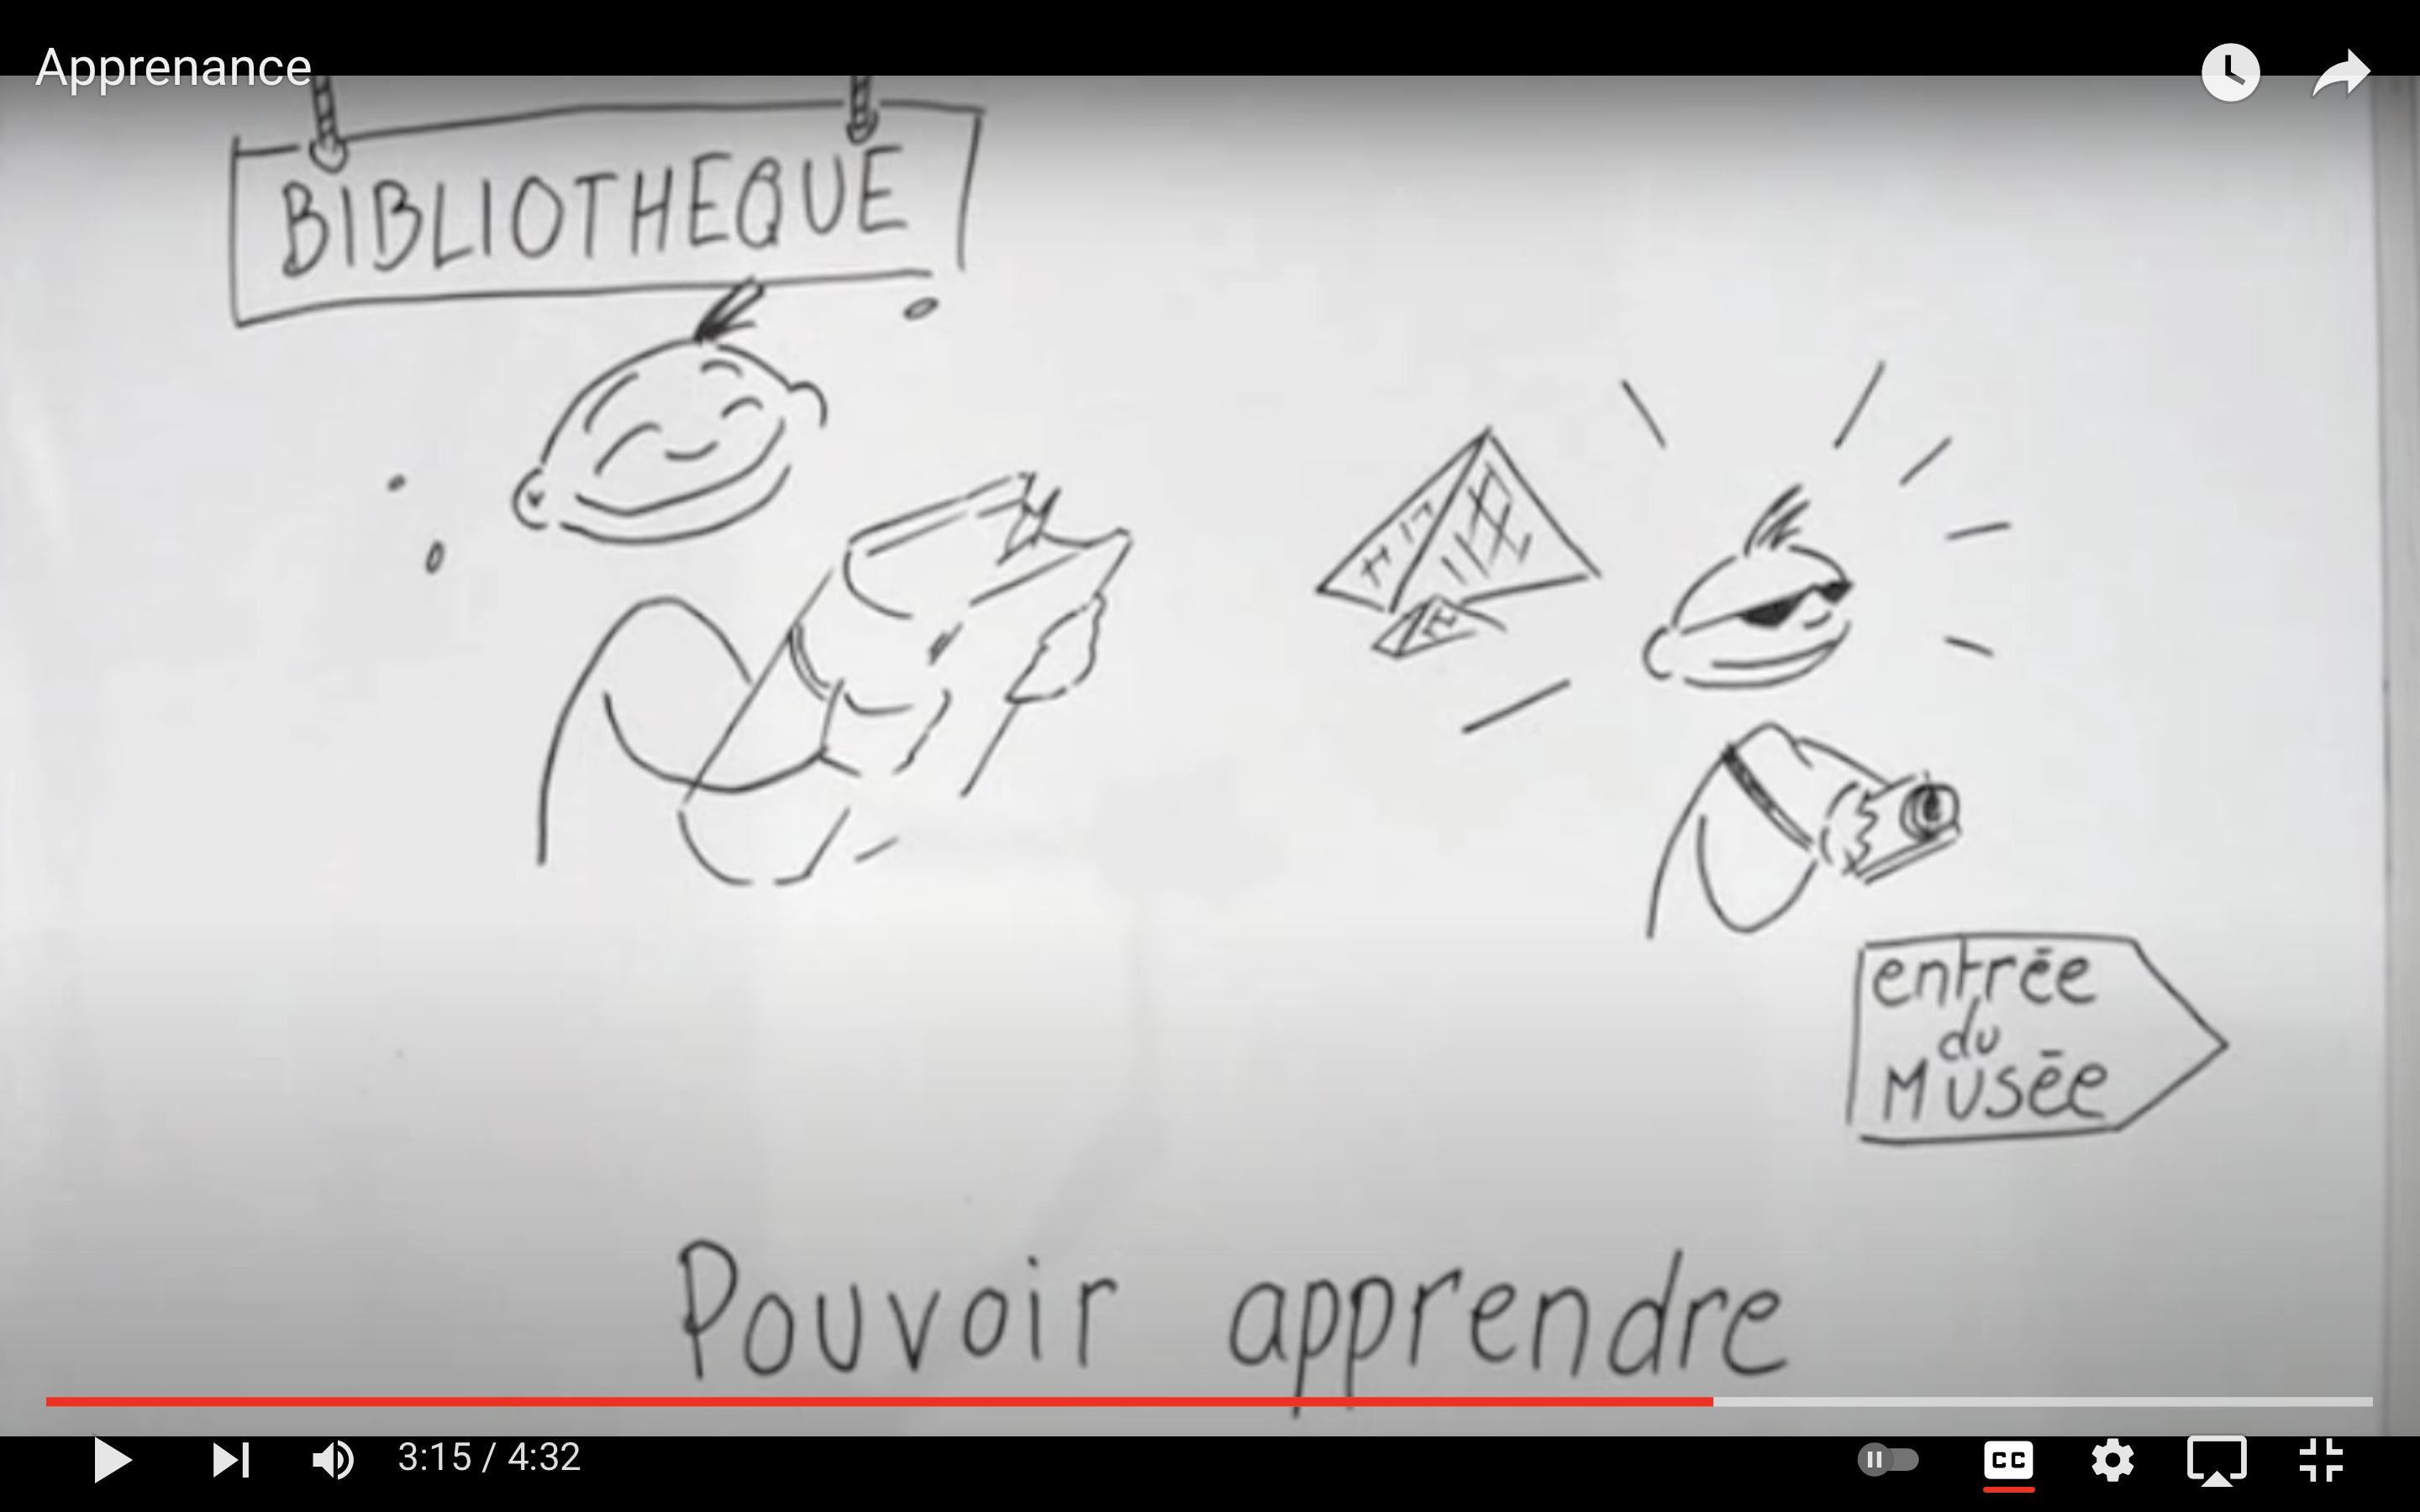 Apprenance
BIBLIOTHEQUE
entrée
du
Musée
Pouvoir apprendre
3:15 / 4:32
CC